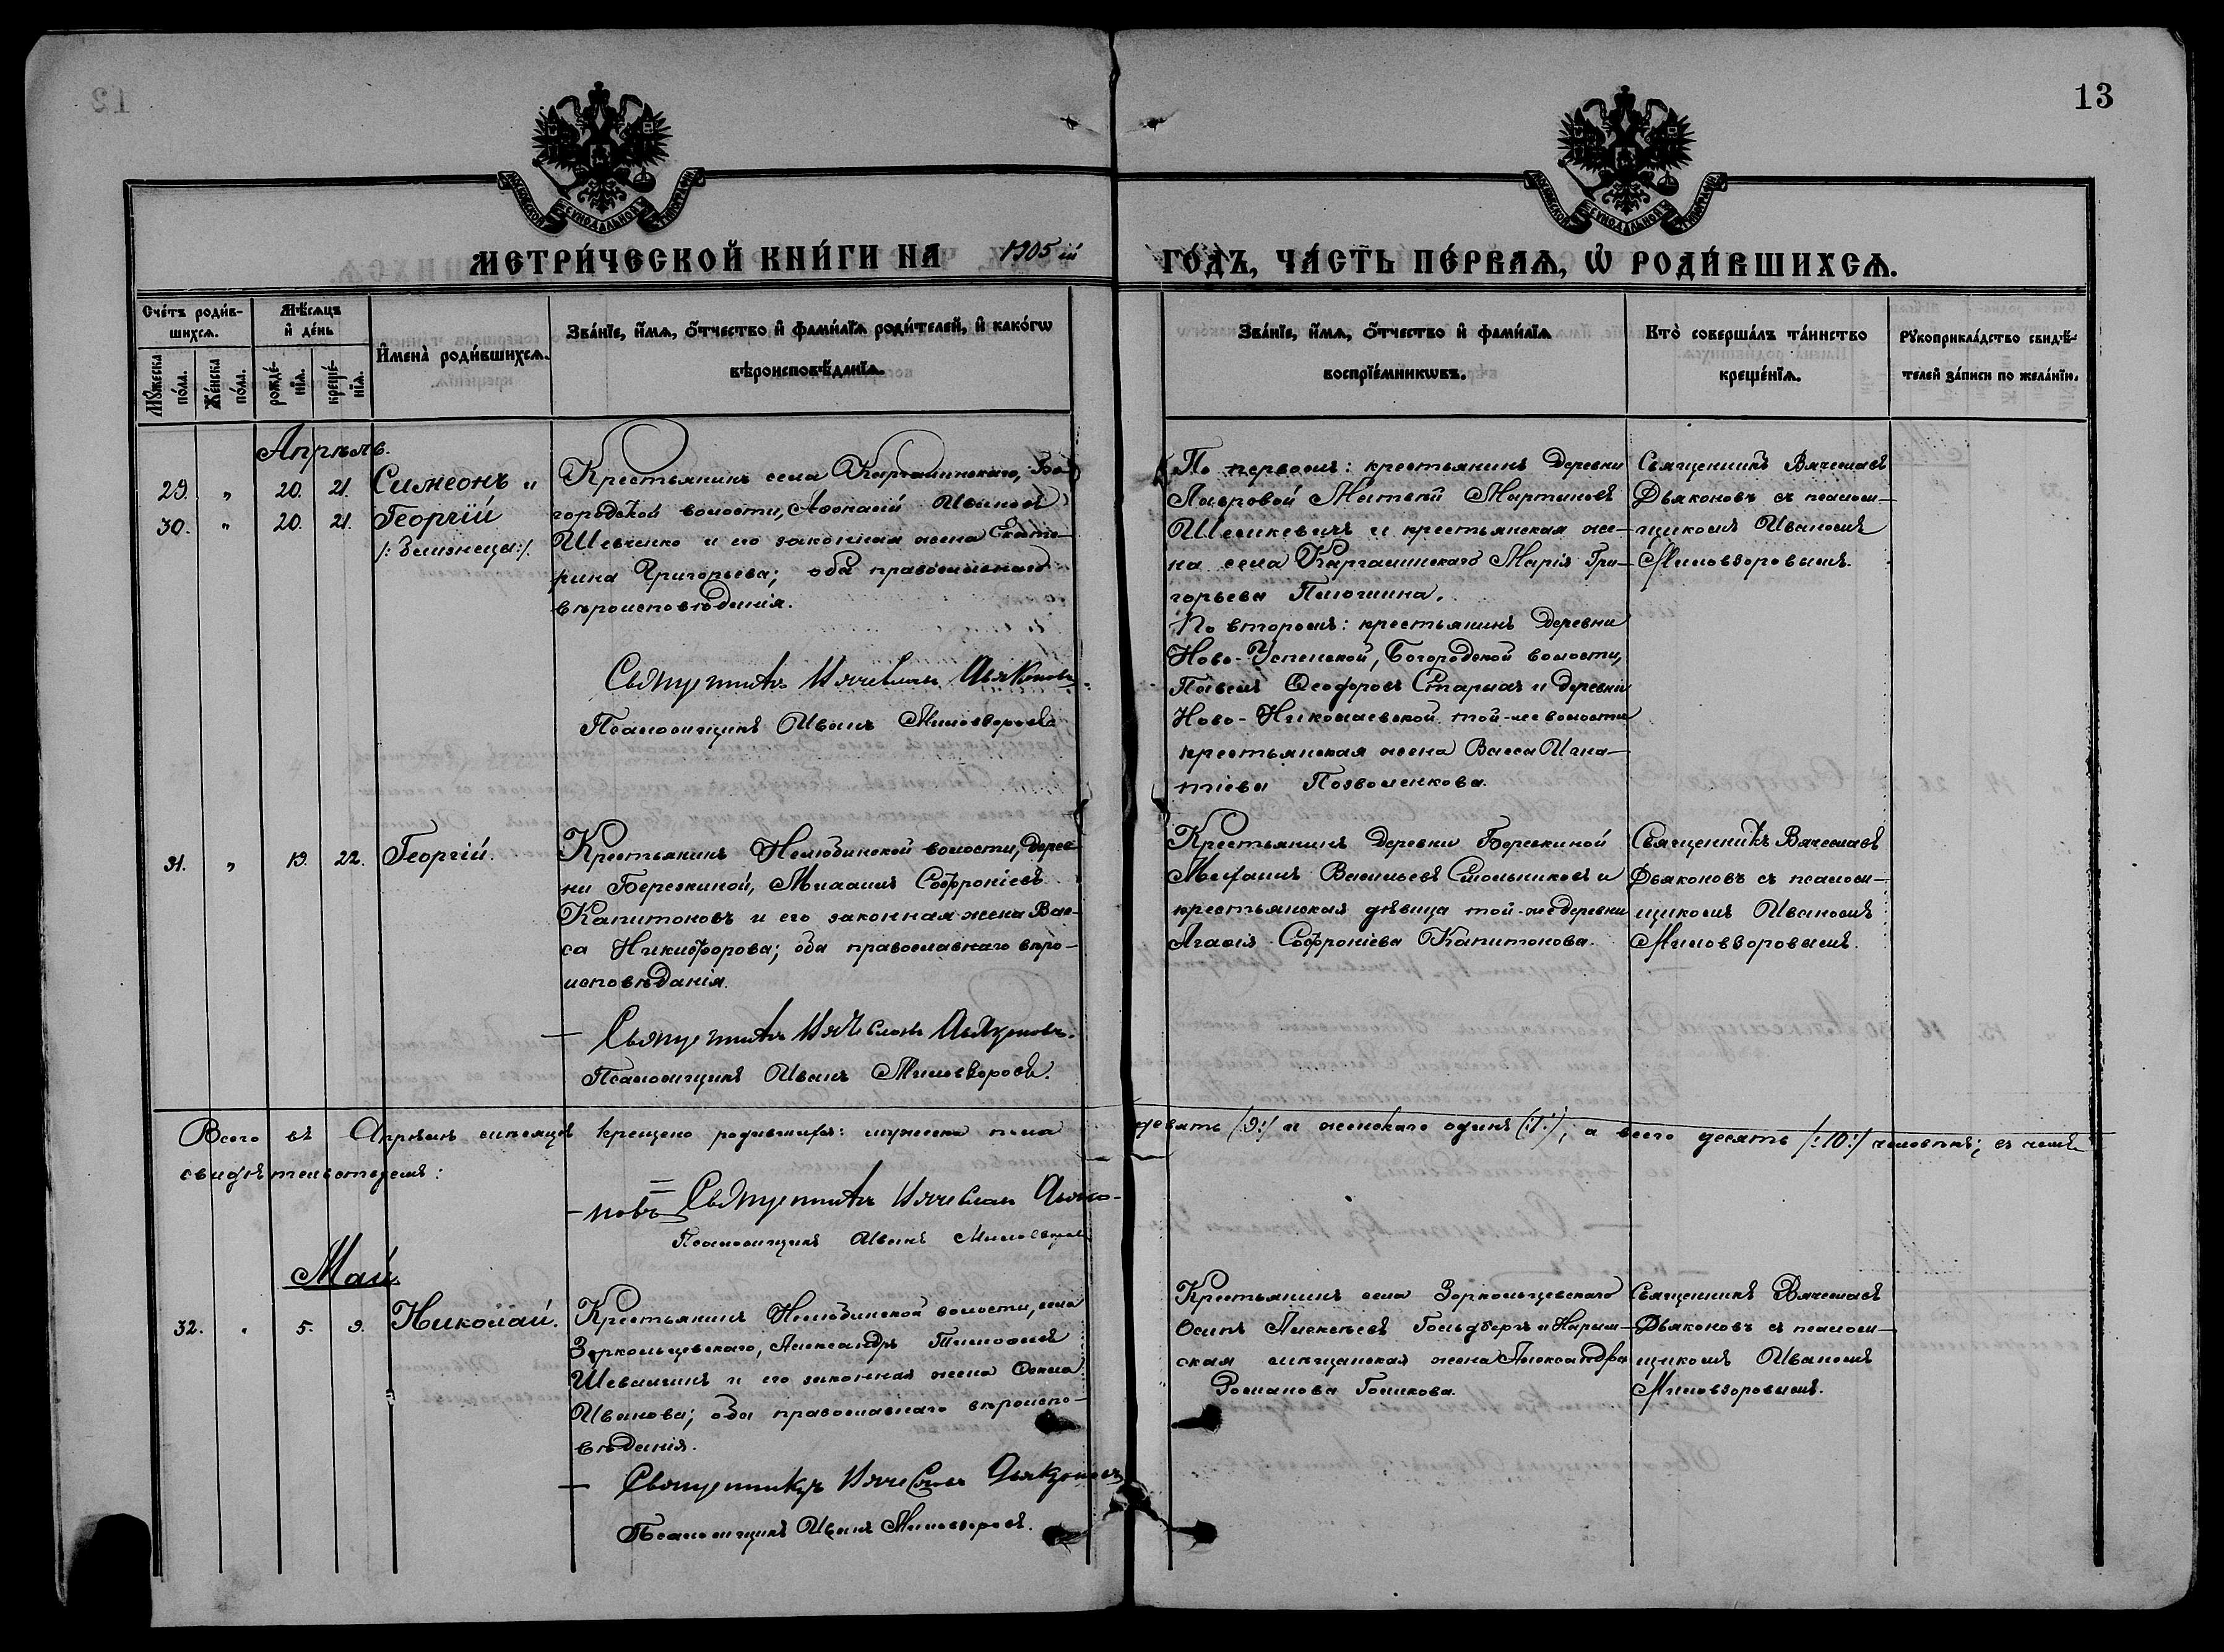 13
МЕТРИ́ЧЕСКОЙ КНИ́ГИ НА 1905 ій ГО́ДЪ, ЧА́СТЬ ПЕ́РВАѦ, Ѡ҆ РОДИ́ВШИХСѦ.
Сче́тъ роди́в-
шихсѧ.
Мѣ́сѧцъ
и҆ де́нь
Мꙋ́жеска
по́ла.
Же́нска
по́ла.
рожде́-
нїѧ.
креще́-
нїѧ.
И҆мена̀ роди́вшихсѧ.
Зва́нїе, и҆́мѧ, ѻ҆́тчество и҆ фами́лїѧ роди́телей, и҆ како́гѡ
вѣроисповѣ́данїѧ.
Зва́нїе, и҆́мѧ, ѻ҆́тчество и҆ фами́лїѧ
воспрїе́мникѡвъ.
Кто̀ соверша́лъ та́инство
креще́нїѧ.
Рꙋкоприкла́дство свидѣ́-
телей за́писи по жела́нїю.
Апрѣль.
29. " 20. 21. Симеонъ и
30. " 20. 21. Георгій
/: Близнецы :/.
Крестьянинъ села Каргалинскаго, Бо-
городской волости, Афанасій Ивановъ
Шевченко и его законная жена Екате-
рина Григорьева; оба православнаго
вѣроисповѣданія.
Священникъ Вячеславъ Дьяконовъ.
Псаломщикъ Иванъ Миловзоровъ
По первомъ: крестьянинъ деревни
Лавровой Матвѣй Мартиновъ
и крестьянская же-
на села Каргалинскаго Марія Гри-
горьева Плюшина.
По второмъ: крестьянинъ деревни
Ново-Успенской, Богородской волости,
Павелъ Феодоровъ Старыхъ и деревни
Ново-Николаевской той-же волости
крестьянская жена Васса Игна-
тіева Позволенкова.
Священникъ Вячеславъ
Дьяконовъ съ псалом-
щикомъ Иваномъ
Миловзоровымъ.
31. " 19. 22. Георгій.
Крестьянинъ Нелюбинской волости, дерев-
ни Березкиной, Михаилъ Софроніевъ
Капитоновъ и его законная жена Вас-
са Никифорова; оба православнаго вѣро-
исповѣданія.
Священникъ Вячеславъ Дьяконовъ.
Псаломщикъ Иванъ Миловзоровъ.
Крестьянинъ деревни Березкиной
Васильевъ Смольниковъ и
крестьянская дѣвица той-же деревни
Агафія Софроніева Капитонова.
Священникъ Вячеславъ
Дьяконовъ съ псалом-
щикомъ Иваномъ
Миловзоровымъ.
Всего въ Апрѣлѣ мѣсяцѣ крещено родившихся: мужеска пола девять /:9:/ и женскаго одинъ (:1:); а всего десять /:10:/ человѣкъ; въ чемъ
свидѣтельствуемъ:
Священникъ Вячеславъ Дьяко-
новъ
Псаломщикъ Иванъ Миловзоровъ
Май.
32. " 5. 9. Николай.
Крестьянинъ Нелюбинской волости, села
Зоркольцевскаго, Александръ Тимофеевъ
и его законная жена
Иванова; оба православнаго вѣроиспо-
вѣданія.
Священникъ Вячеславъ Дьяконовъ
Псаломщикъ Иванъ Миловзоровъ.
Крестьянинъ села Зоркольцевскаго
Осипъ Алексѣевъ Гольдбергъ и Нарым-
ская мѣщанская жена Александра
Романова Голикова.
Священникъ Вячеславъ
Дьяконовъ съ псалом-
щикомъ Иваномъ
Миловзоровымъ.